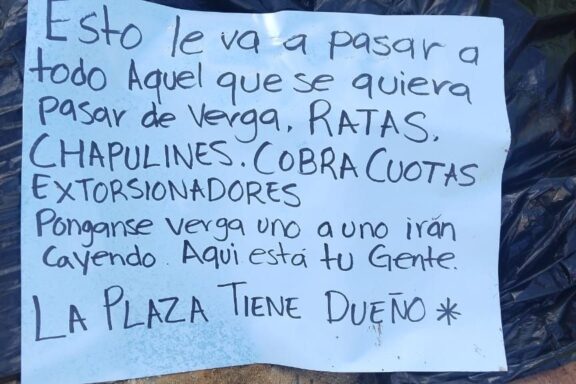 Esto le va a pasar a
todo Aquel que se quiera
pasar de Verga. RATAS.
CHAPULINES. COBRA CUOTAS
EXTORSIONADORES
Ponganse verga uno a uno irán
Cayendo. Aqui está tu Gente.
LA PLAZA TIENE DUEÑO *